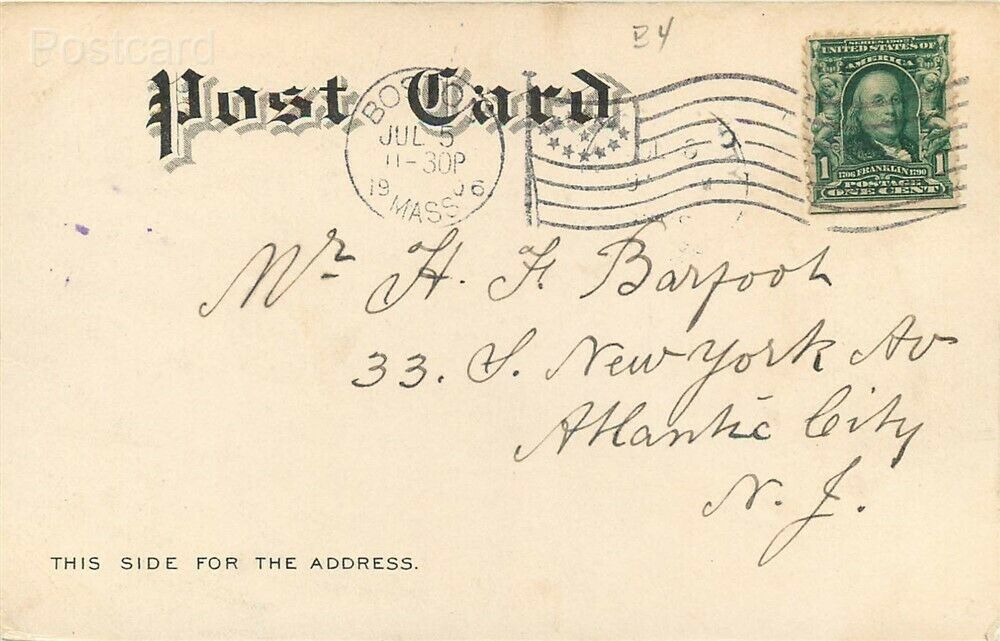 Postcard
B4
Post Card
BOSTON
JUL 5
11-30P
1906
MASS.
SERIES 1902
UNITED STATES OF
AMERICA
1 1
1706 FRANKLIN 1790
POSTAGE
ONE CENT
Mr H. F. Barfoot
33. S. New York Av
Atlantic City
N. J.
THIS SIDE FOR THE ADDRESS.